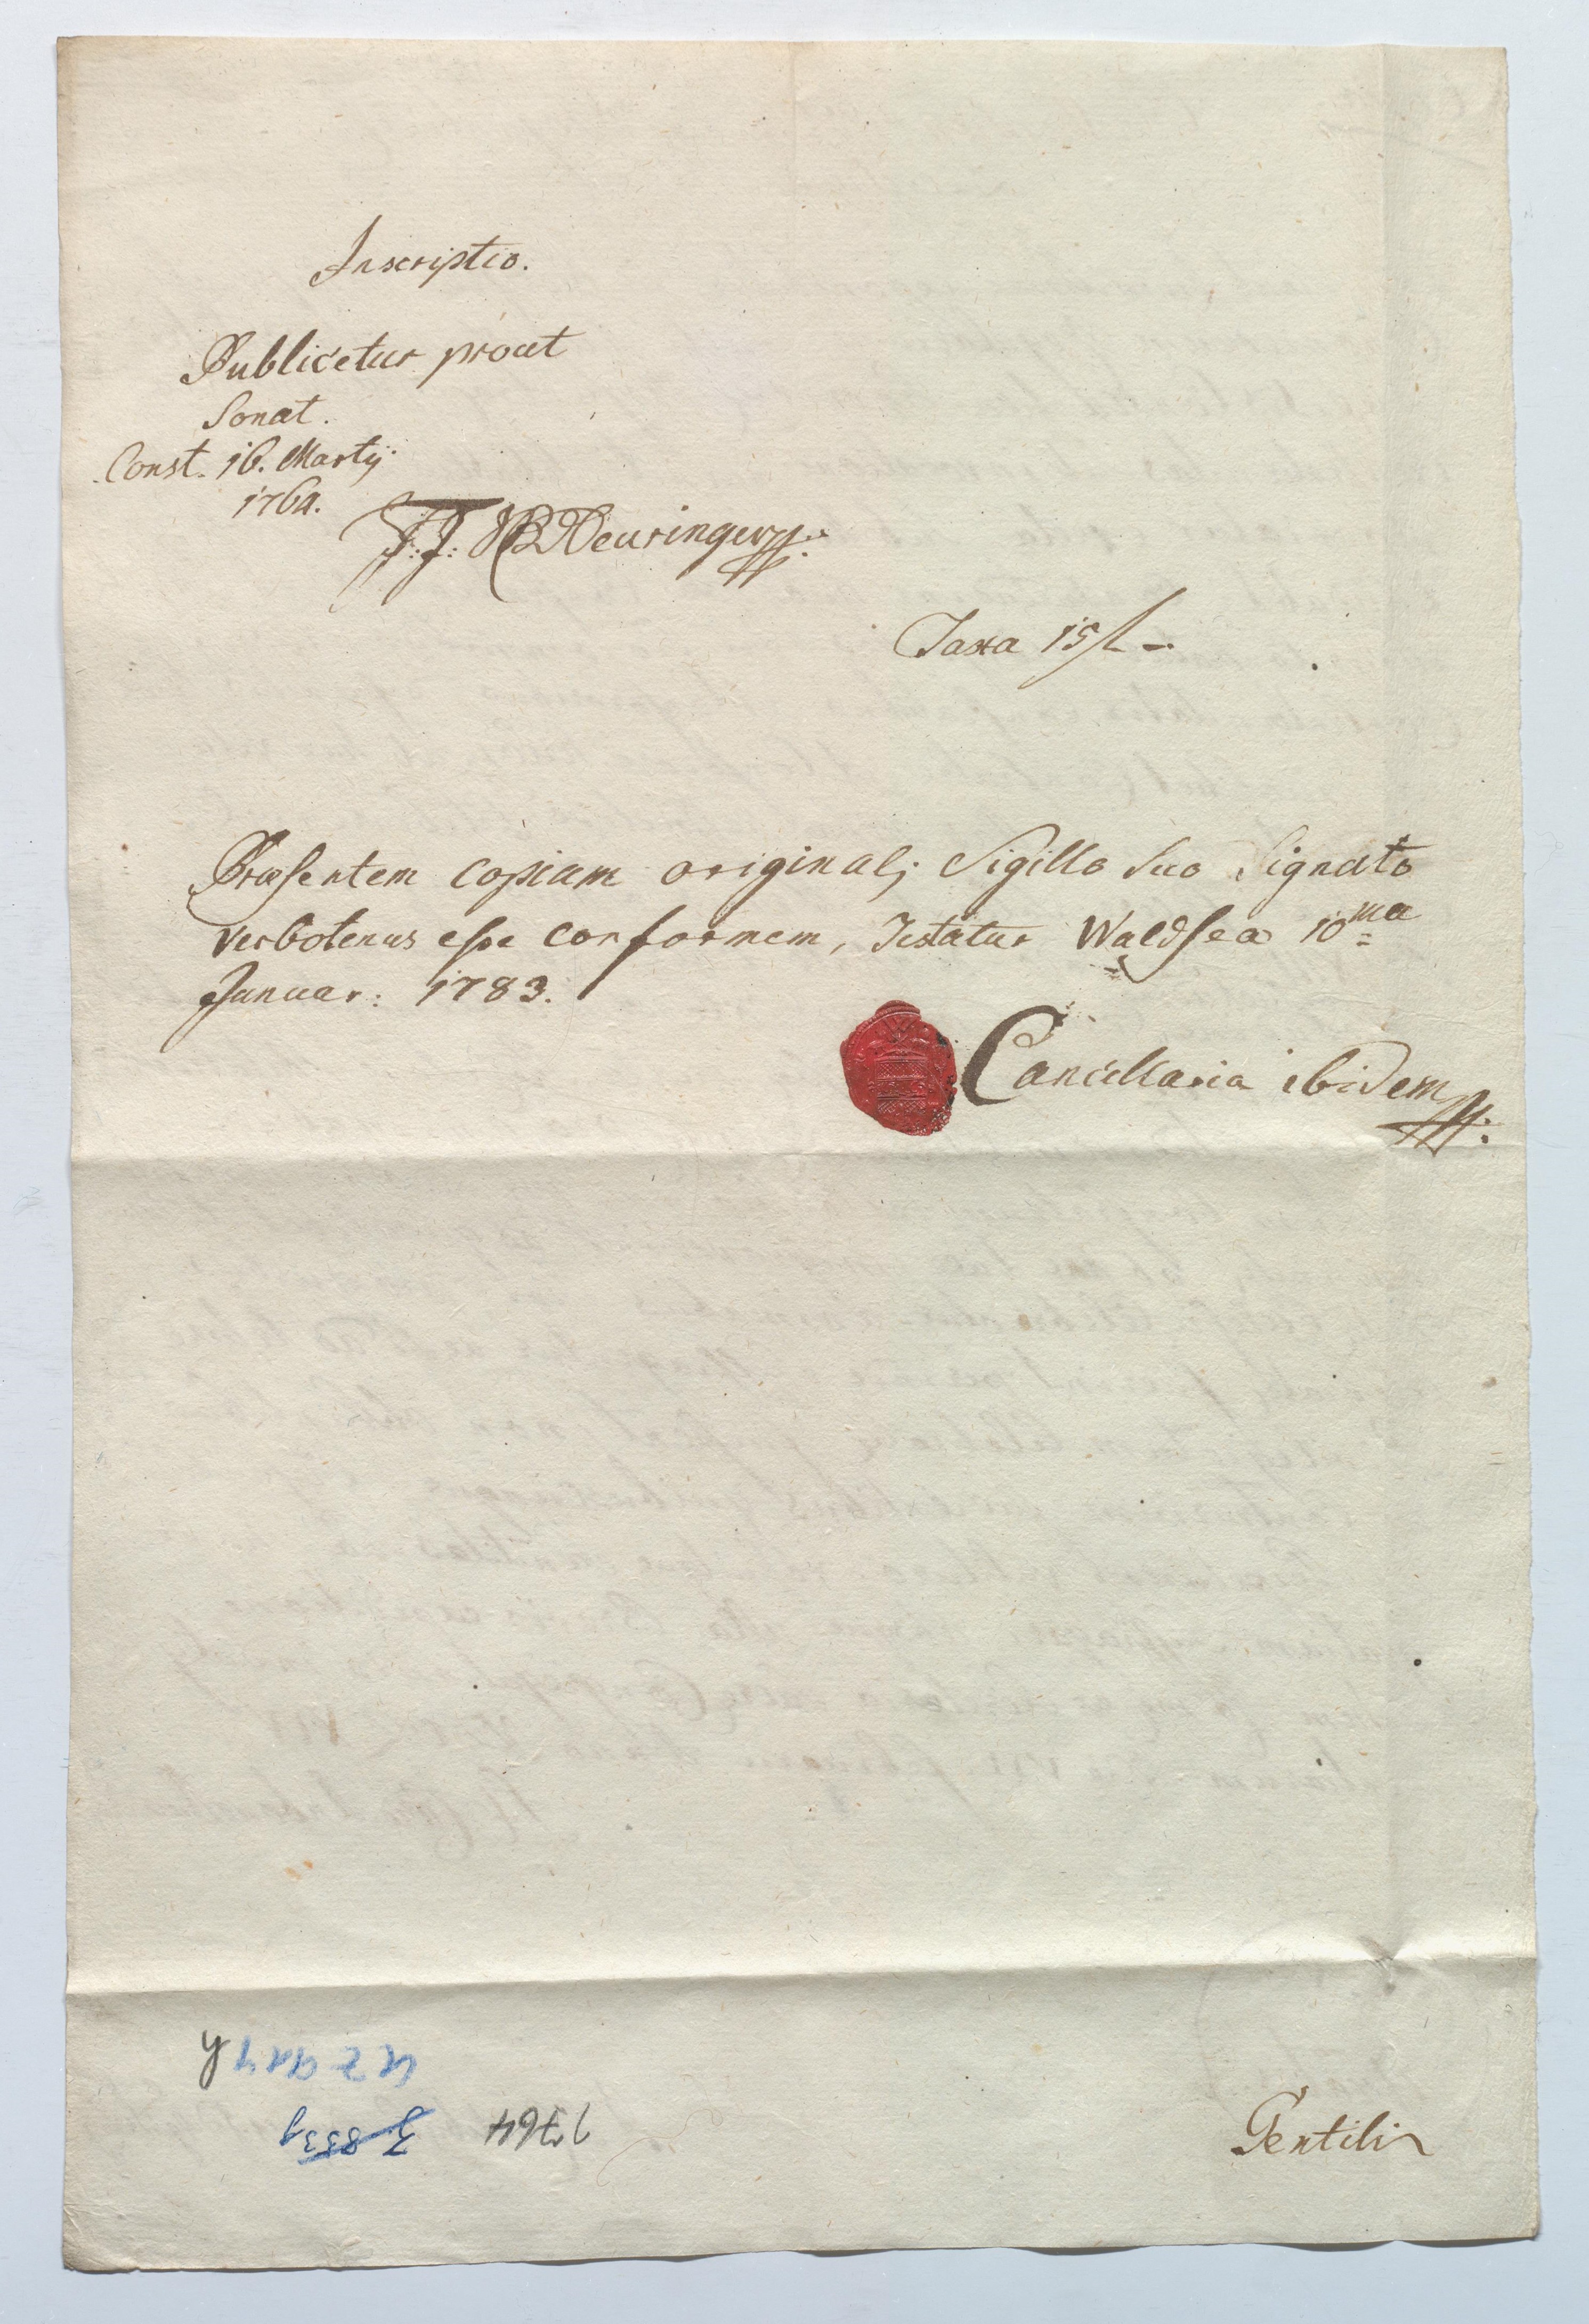 Inscriptio.
Publicetur prout
Sonat.
Const. 16. Martij
1764.
Deuringer
Taxa 15
Præsentem copiam originalj Sigillo Suo Signato
verbotenus esse conformem, Testatur Waldsea 10ma
Januar: 1783.
Cancellaria ibidem
1764
Gentilis